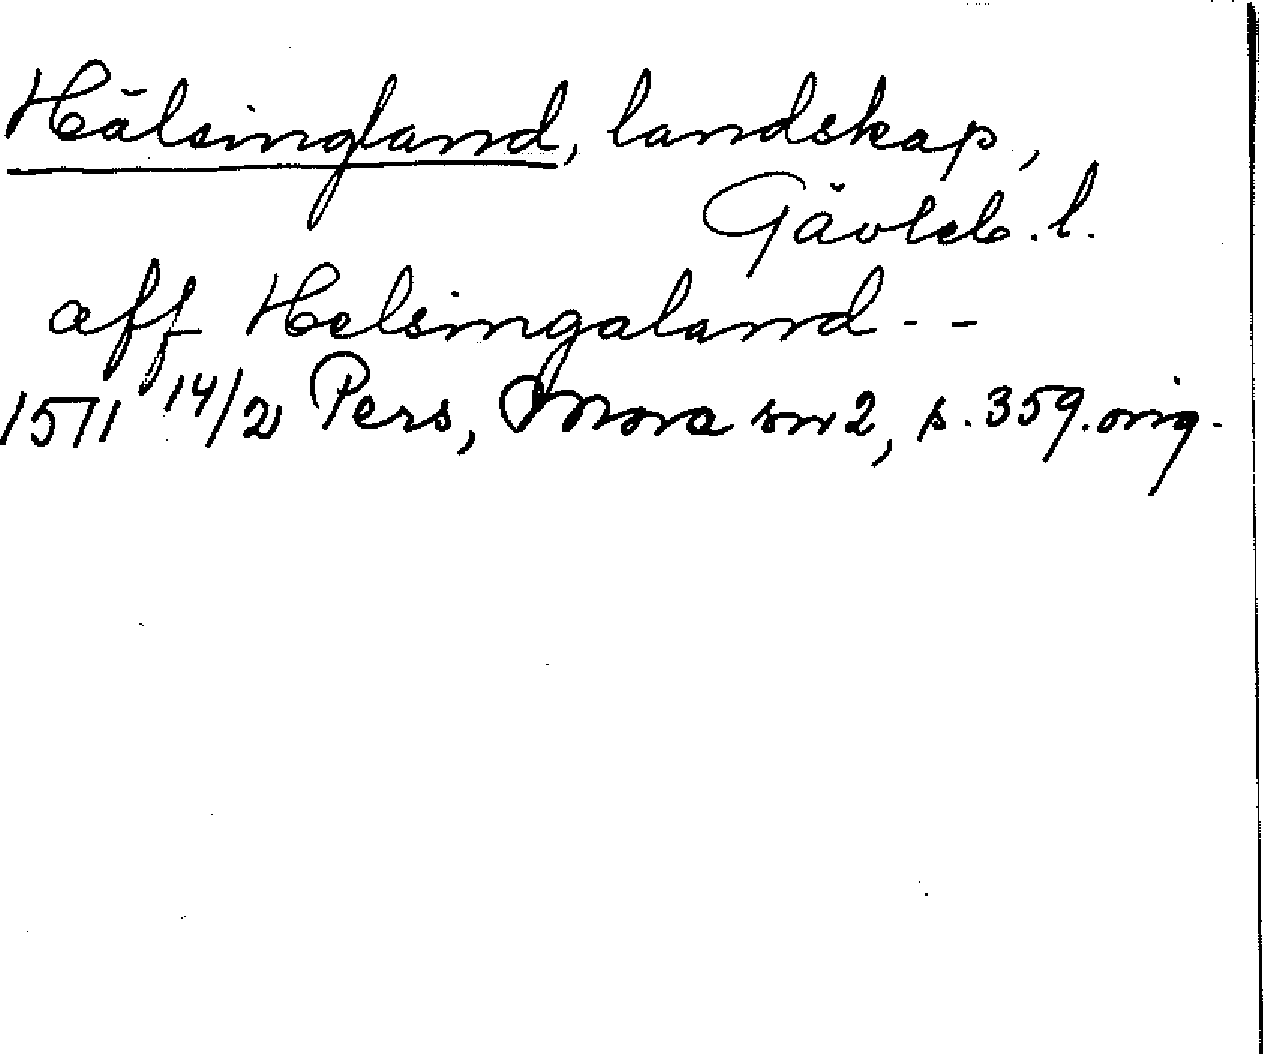 Hälsingland, landskap,
Gävleb. l.
aff Helsingaland - -
1571 14/2 Pers, Mora sn 2, s. 359. orig.